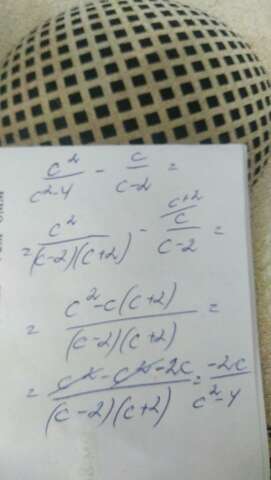 c²/(c²-4) - c/(c-2) =
= c²/((c-2)(c+2)) - c^(c+2)/(c-2) =
= (c²-c(c+2))/((c-2)(c+2)) =
= (c²-c²-2c)/((c-2)(c+2)) = -2c/(c²-4)